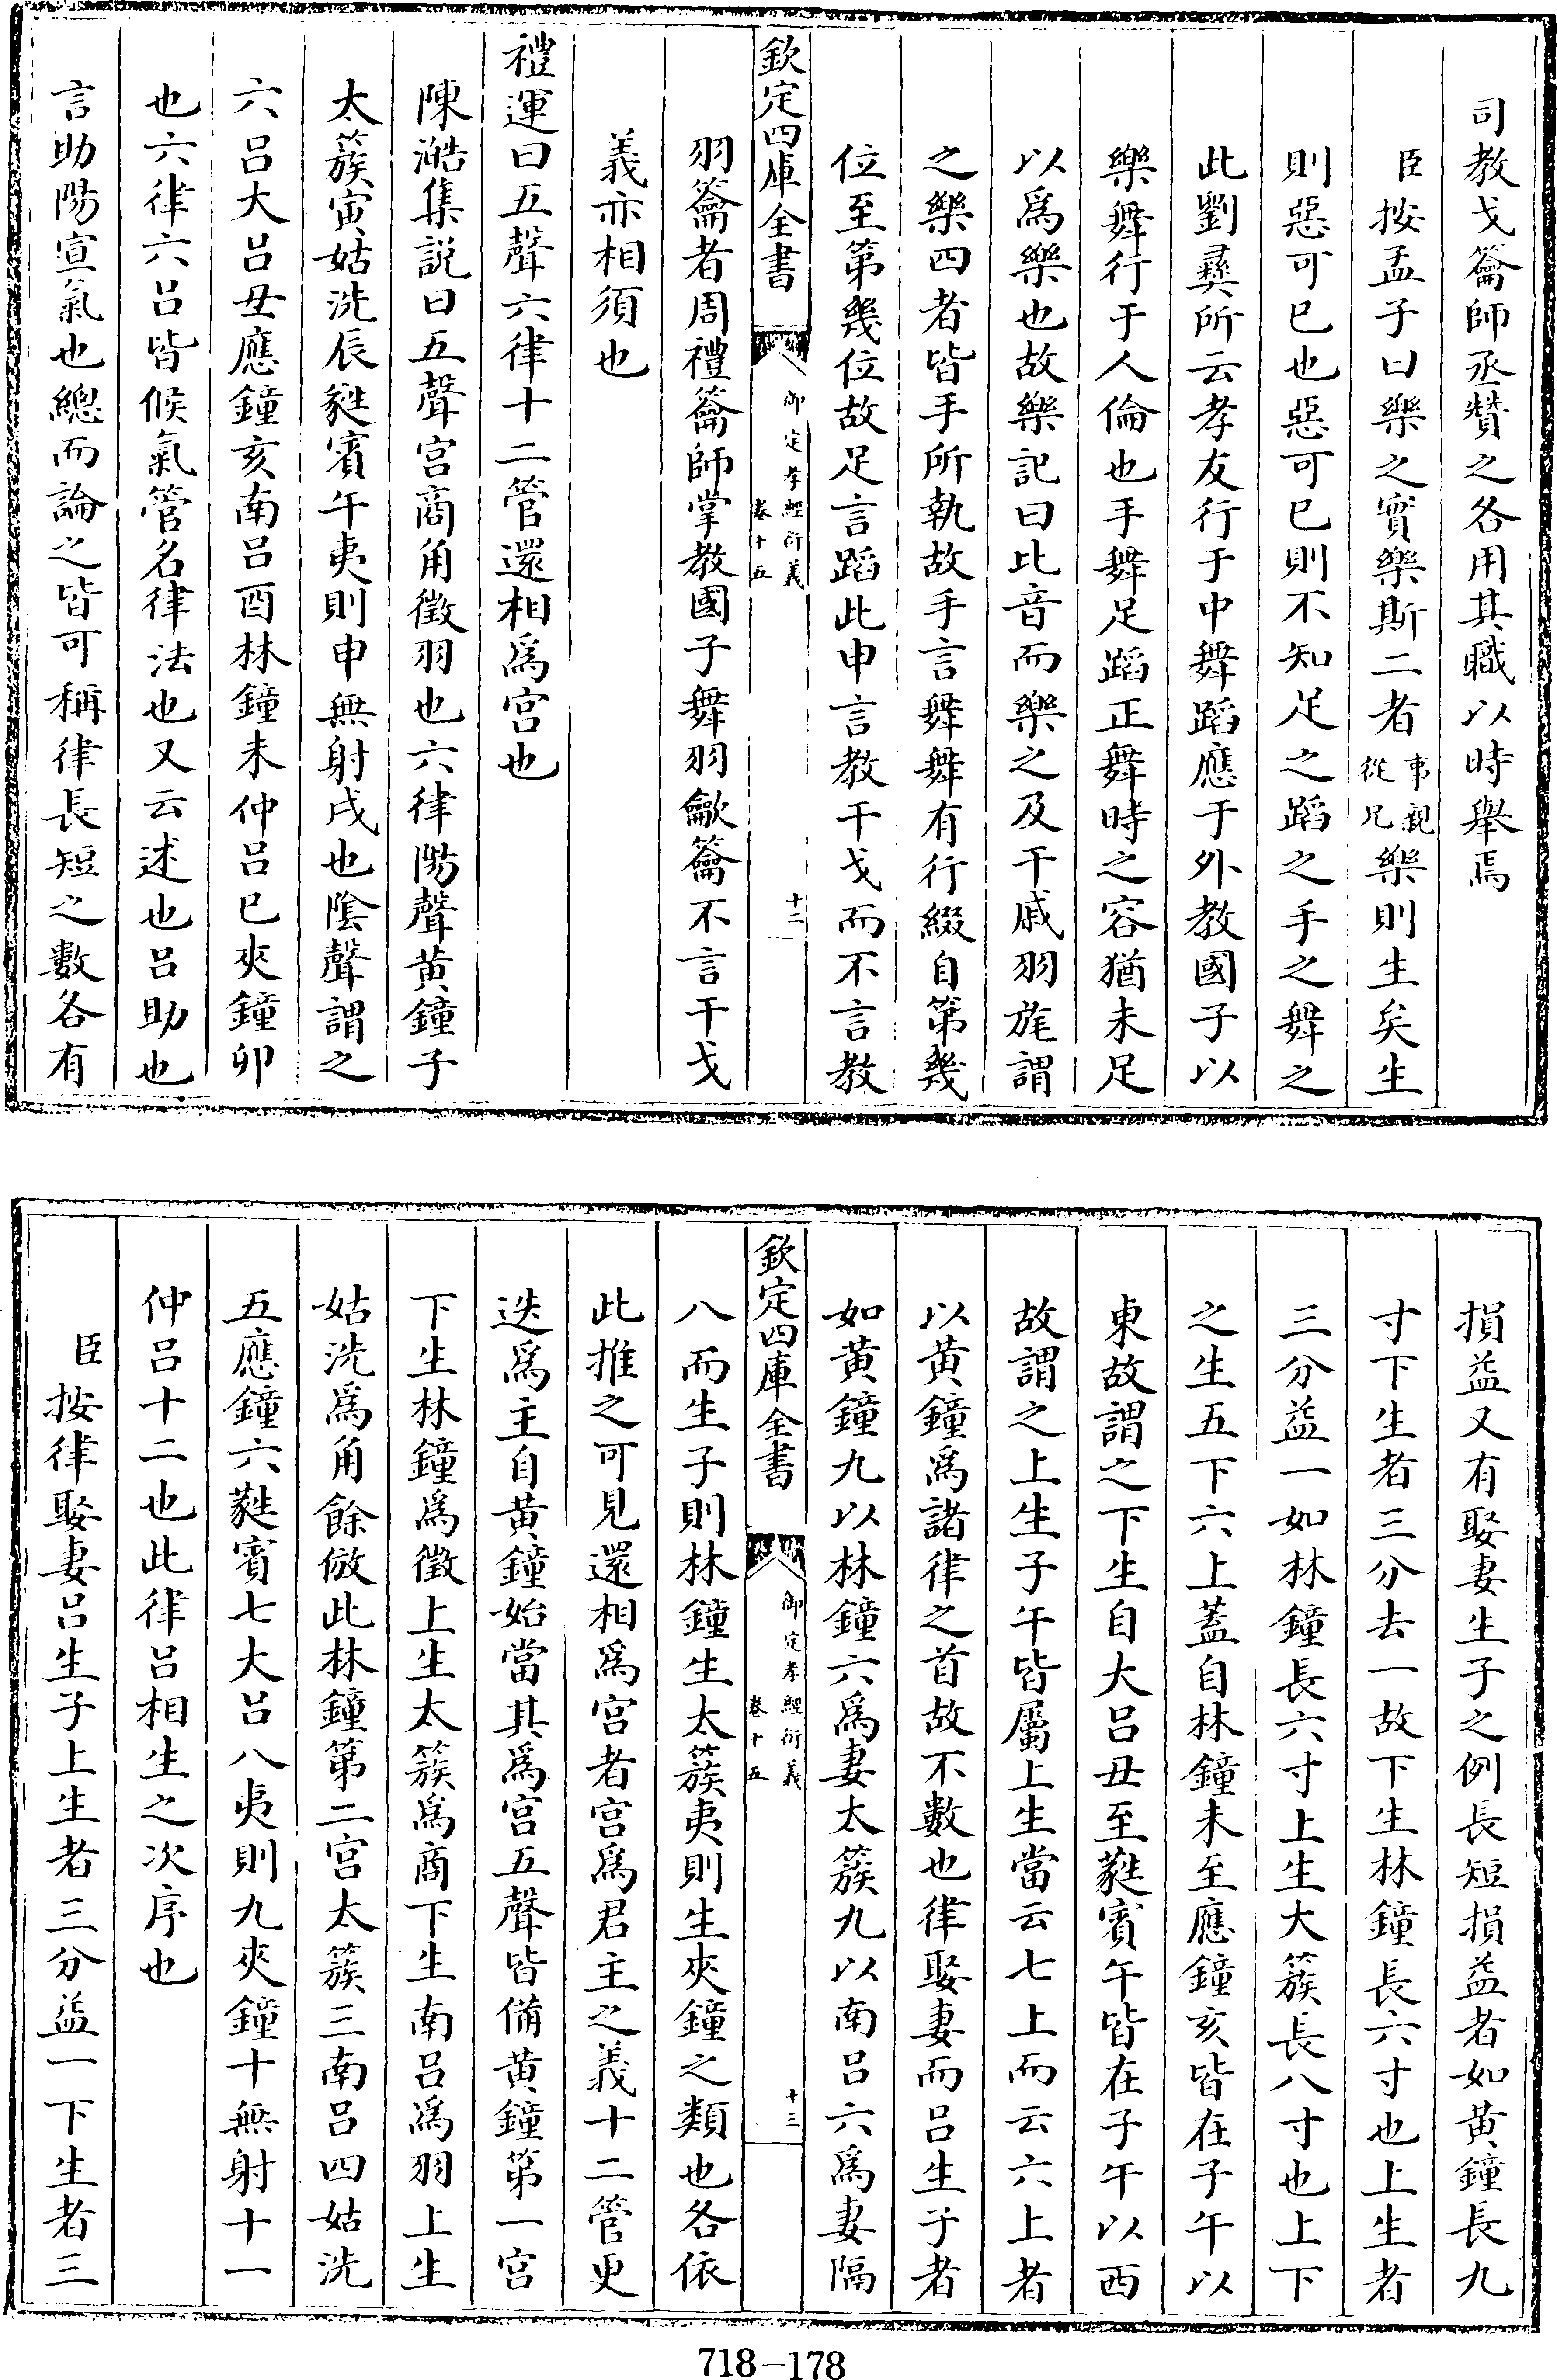 司教戈籥師丞贊之各用其職以時舉焉
臣按孟子曰樂之實樂斯二者事親從兄樂則生矣生
則惡可已也惡可已則不知足之蹈之手之舞之
此劉彞所云孝友行于中舞蹈應于外教國子以
樂舞行于人倫也手舞足蹈正舞時之容猶未足
以爲樂也故樂記曰比音而樂之及干戚羽旄謂
之樂四者皆手所執故手言舞舞有行綴自第幾
位至第幾位故足言蹈此申言教干戈而不言教
欽定四庫全書 御定孝經衍義 卷十五 十二
羽籥者周禮籥師掌教國子舞羽龡籥不言干戈
義亦相須也
禮運曰五聲六律十二管還相爲宫也
陳澔集説曰五聲宫商角徵羽也六律陽聲黄鐘子
太簇寅姑洗辰蕤賓午夷則申無射戌也陰聲謂之
六呂大呂丑應鐘亥南呂酉林鐘未仲呂巳夾鐘卯
也六律六呂皆候氣管名律法也又云述也呂助也
言助陽宣氣也總而論之皆可稱律長短之數各有
損益又有娶妻生子之例長短損益者如黄鐘長九
寸下生者三分去一故下生林鐘長六寸也上生者
三分益一如林鐘長六寸上生大簇長八寸也上下
之生五下六上蓋自林鐘未至應鐘亥皆在子午以
東故謂之下生自大呂丑至蕤賓午皆在子午以西
故謂之上生子午皆屬上生當云七上而云六上者
以黄鐘爲諸律之首故不數也律娶妻而呂生子者
如黄鐘九以林鐘六爲妻太簇九以南呂六爲妻隔
欽定四庫全書 御定孝經衍義 卷十五 十三
八而生子則林鐘生太簇夷則生夾鐘之類也各依
此推之可見還相爲宫者宫爲君主之義十二管更
迭爲主自黄鐘始當其爲宫五聲皆備黄鐘第一宫
下生林鐘爲徵上生太簇爲商下生南呂爲羽上生
姑洗爲角餘倣此林鐘第二宫太簇三南呂四姑洗
五應鐘六蕤賓七大呂八夷則九夾鐘十無射十一
仲呂十二也此律呂相生之次序也
臣按律娶妻呂生子上生者三分益一下生者三
718-178